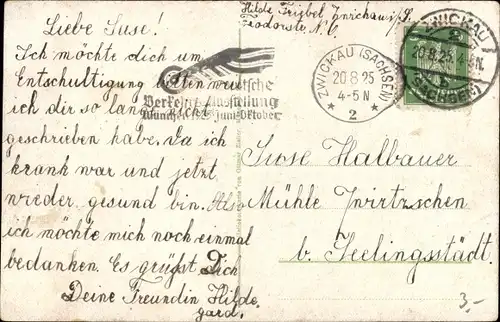 Liebe Suse!
Ich möchte dich um
Entschultigung bitten weil
ich dir so lang nicht
geschrieben habe. Da ich
krank war und jetzt
wieder gesund bin. Also
ich möchte mich noch einmal
bedanken. Es grüßt Dich
Deine Freundin Hilde
gard.
Deutsche
Verkehrs-Ausstellung
München 1925 Juni-Oktober
Hilde Zwickau i/S.
ZWICKAU (SACHSEN)
20 8.25
4-5 N
* 2 *
ZWICKAU
2
20.8.25. 4-5N.
(SACHSEN)
Suse Halbauer
Mühle Zwirtzschen
b. Seelingsstädt.
3,-